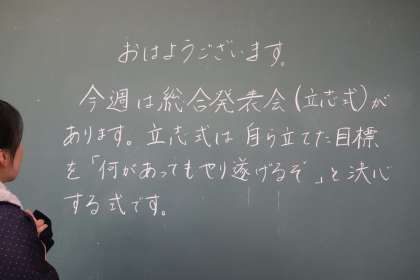 おはようございます。
今週は総合発表会(立志式)が
あります。立志式は自ら立てた目標
を「何があってもやり遂げるぞ」と決心
する式です。